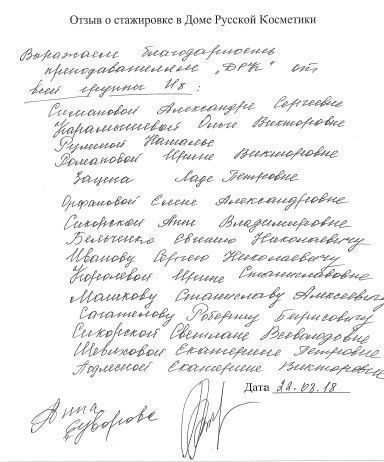 Отзыв о стажировке в Доме Русской Косметики
Выражаем благодарность
преподавателям „ДРК" от
всей группы И8:
Симановой Александре Сергеевне
Карамышевой Ольге Викторовне
Руминой Наталье
Романовой Ирине Викторовне
Зацепа Ладе Петровне
Орфановой Елене Александровне
Сикорской Анне Владимировне
Бельченко Евгению Николаевичу
Иванову Сергею Николаевичу
Королевой Ирине Станиславовне
Машкову Станиславу Алексеевичу
Сагателову Роберту Борисовичу
Сикорской Светлане Всеволодовне
Шевиховой Екатерине Петровне
Подлесной Екатерине Викторовне
Дата 22.08.18
Анна
Суворова